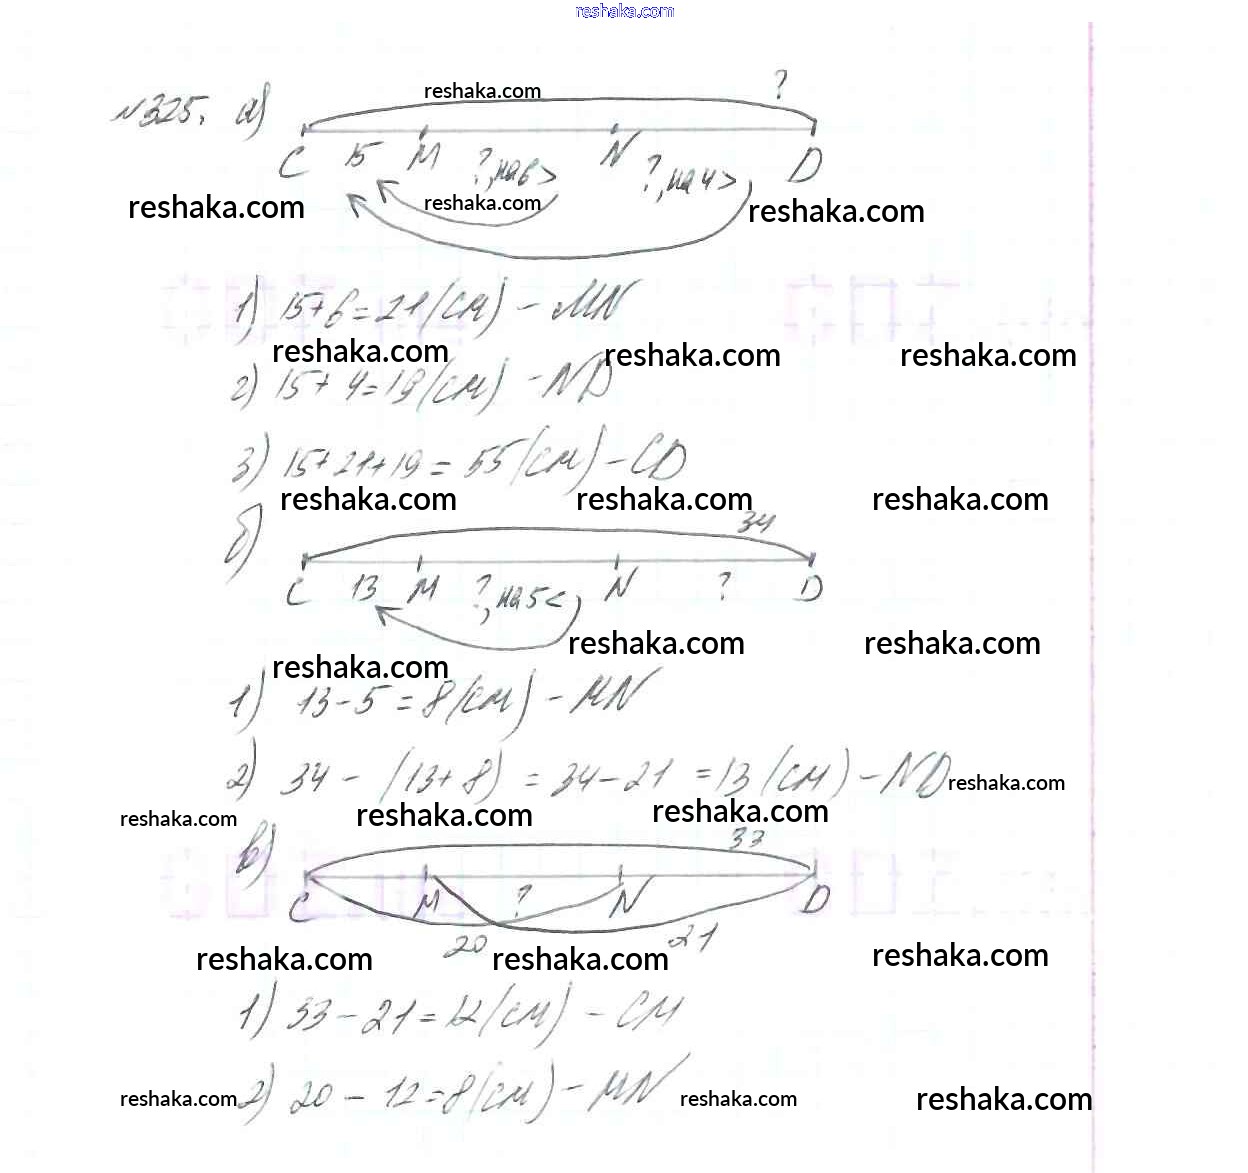 reshaka.com
№325. а) reshaka.com ?
C 15 M ?, на 6 > N ?, на 4 > D
reshaka.com reshaka.com reshaka.com
1) 15+6=21(см) - MN
reshaka.com reshaka.com reshaka.com
2) 15+4=19(см) - ND
3) 15+21+19=55(см) - CD
reshaka.com reshaka.com reshaka.com
б) 34
C 13 M ?, на 5 < N ? D
reshaka.com reshaka.com
reshaka.com
1) 13-5=8(см) - MN
2) 34-(13+8)=34-21=13(см) - ND reshaka.com
reshaka.com reshaka.com reshaka.com
в) 33
C M ? N D
20 21
reshaka.com reshaka.com reshaka.com
1) 33-21=12(см) - CM
2) 20-12=8(см) - MN
reshaka.com reshaka.com reshaka.com